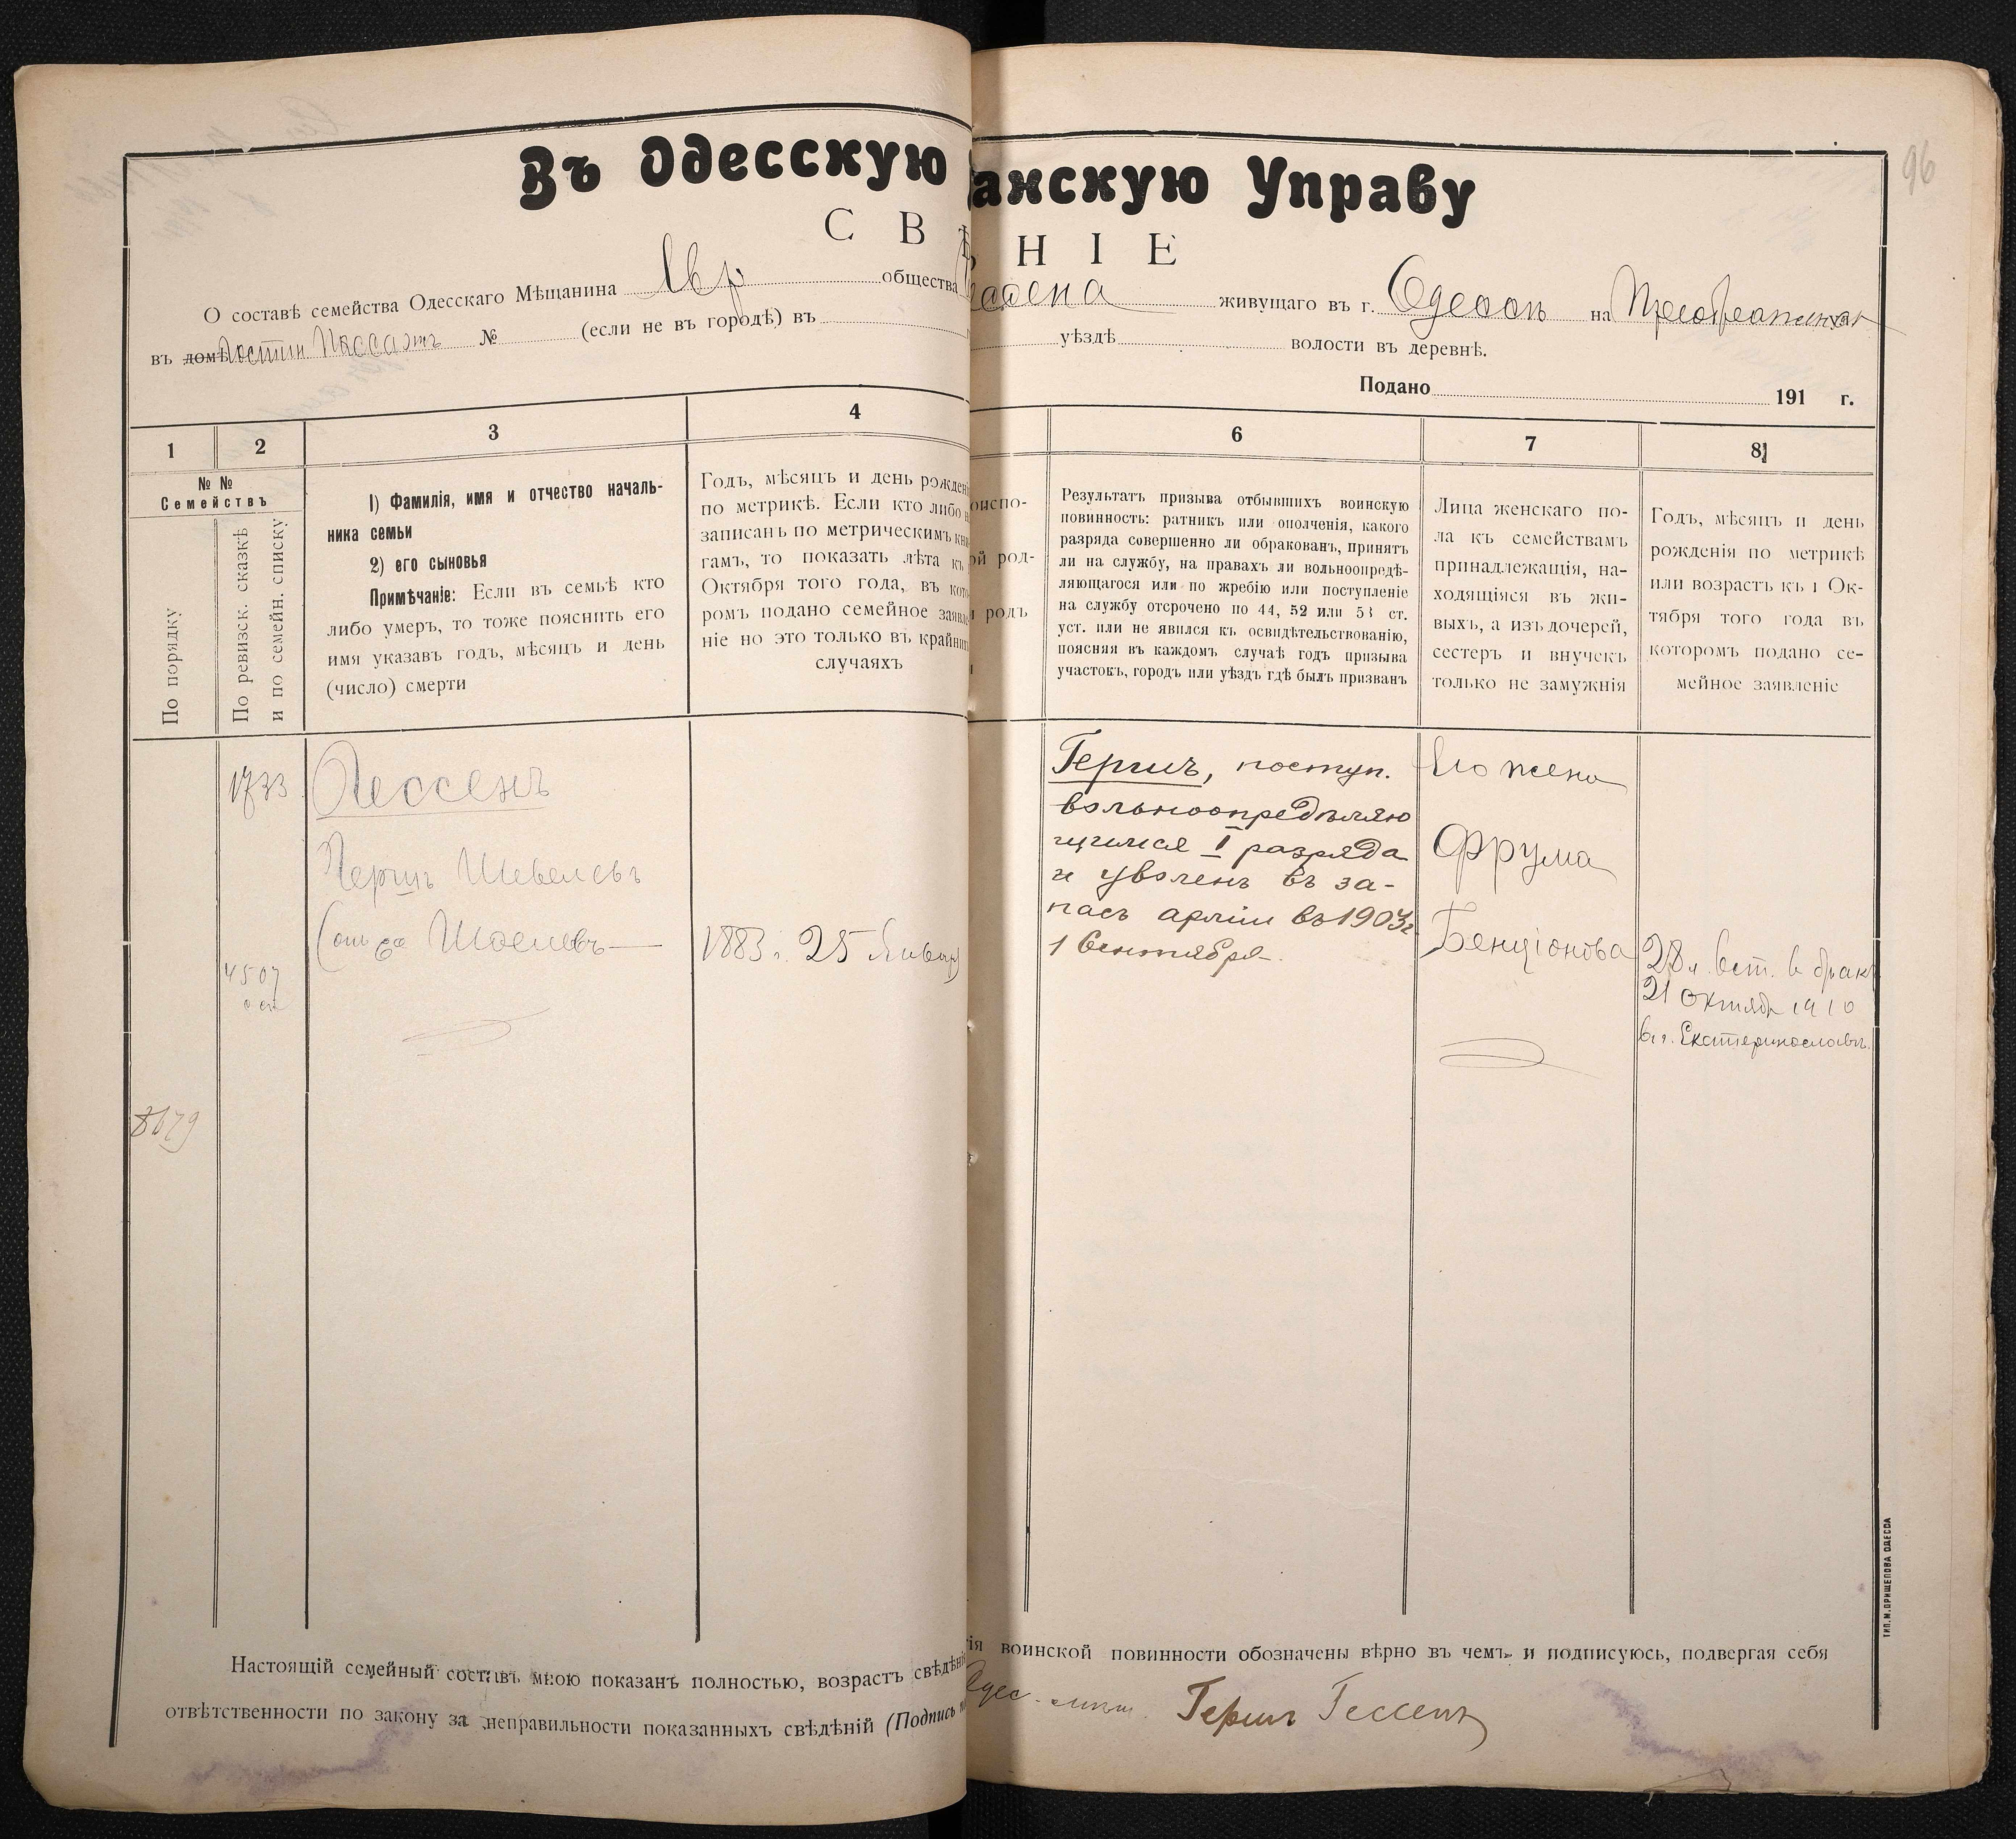 96
Въ Одесскую анскую Управу
С В Ѣ Н І Е
О составѣ семейства Одесскаго Мѣщанина Евр общества живущаго въ г. Одессѣ на
въ домѣ Гостин. Пассажъ № (если не въ городѣ) въ уѣздѣ волости въ деревнѣ.
Подано 191 г.
1 2 3 4 6 7 8
№ №
Семействъ
По порядку
По ревизск. сказкѣ
и по семейн. списку
1) Фамилія, имя и отчество началь-
ника семьи
2) его сыновья
Примѣчаніе: Если въ семьѣ кто
либо умеръ, то тоже пояснить его
имя указавъ годъ, мѣсяцъ и день
(число) смерти
Годъ, мѣсяцъ и день рожден
по метрикѣ. Если кто либо н
записанъ по метрическимъ кни
гамъ, то показать лѣта къ
Октября того года, въ кото
ромъ подано семейное заявле
ніе но это только въ крайних
случаяхъ
оиспо-
ой род-
и родъ
Результатъ призыва отбывшихъ воинскую
повинность: ратникъ или ополченія, какого
разряда совершенно ли обракованъ, принятъ
ли на службу, на правахъ ли вольноопредѣ-
ляющагося или по жребію или поступленіе
на службу отсрочено по 44, 52 или 53 ст.
уст. или не явился къ освидѣтельствованію,
поясняя въ каждомъ случаѣ годъ призыва
участокъ, городъ или уѣздъ гдѣ былъ призванъ
Лица женскаго по-
ла къ семействамъ
принадлежащія, на-
ходящіяся въ жи-
выхъ, а изъ дочерей,
сестеръ и внучекъ
только не замужнія
Годъ, мѣсяцъ и день
рожденія по метрикѣ
или возрастъ къ 1 Ок-
тября того года въ
которомъ подано се-
мейное заявленіе
1733
Гессенъ
Гершъ Шевелевъ
4507
1883 г. 25 Января
8679
Гершъ, поступ.
вольноопредѣляю
щимся I разряда
и уволенъ въ за-
пасъ арміи въ 1903 г
1 Сентября.
Его жена
Фрума
Бенціонова
28 л. Вст. в бракъ
21 октябр 1910
в г. Екатеринославѣ.
Настоящій семейный составъ мною показанъ полностью, возрастъ свѣдѣні ія воинской повинности обозначены вѣрно въ чемъ и подписуюсь, подвергая себя
отвѣтственности по закону за неправильности показанныхъ свѣдѣній (Подпись Гершъ Гессенъ
ТИП. М. ПРИЩЕПОВА ОДЕССА